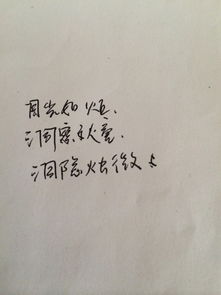 目光如炬、
洞察秋毫、
洞隐烛微